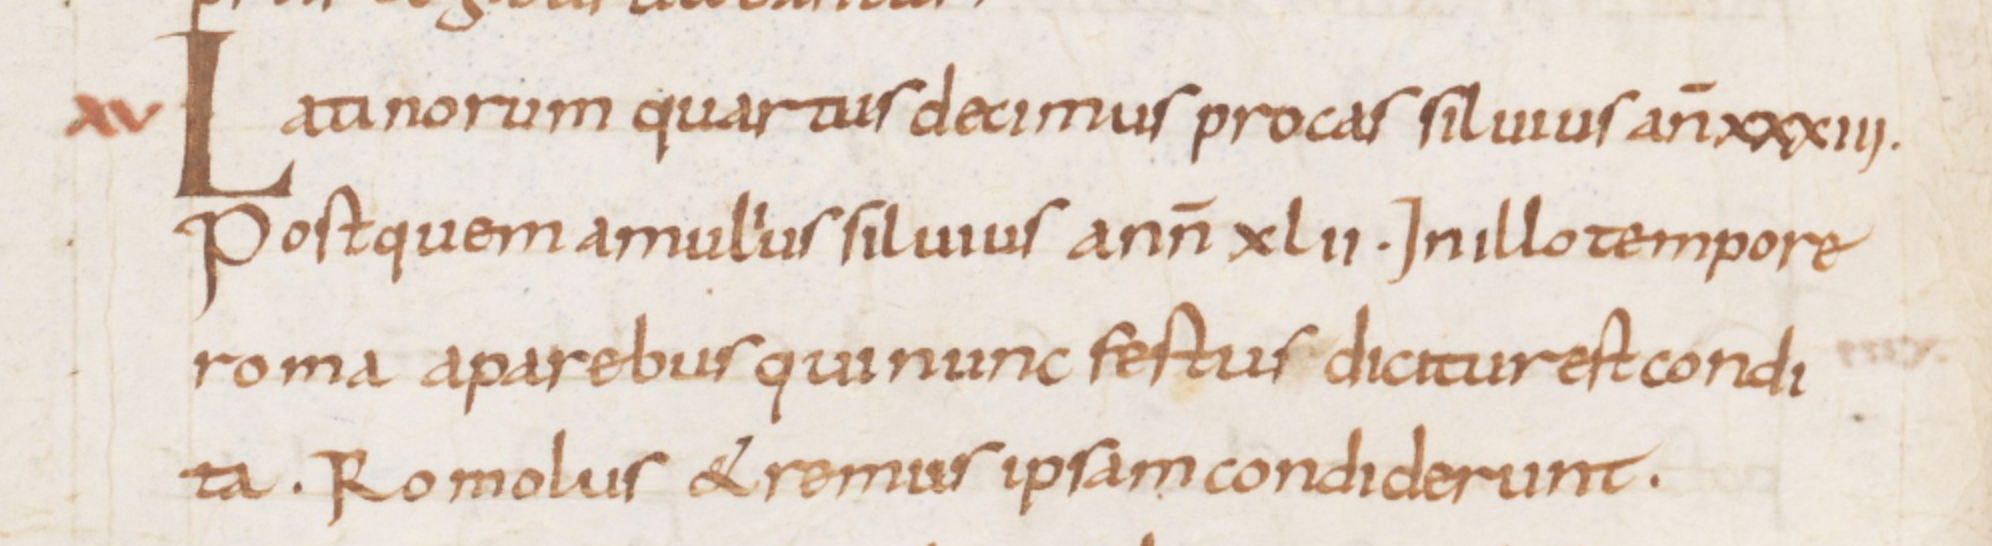 xv Latinorum quartus decimus procas siluius an̄ xxxiij.
Post quem amulius siluius ann̄ xlii. In illo tempore
roma aparebus qui nunc festus dicitur est condi
ta. Romolus & remus ipsam condiderunt.